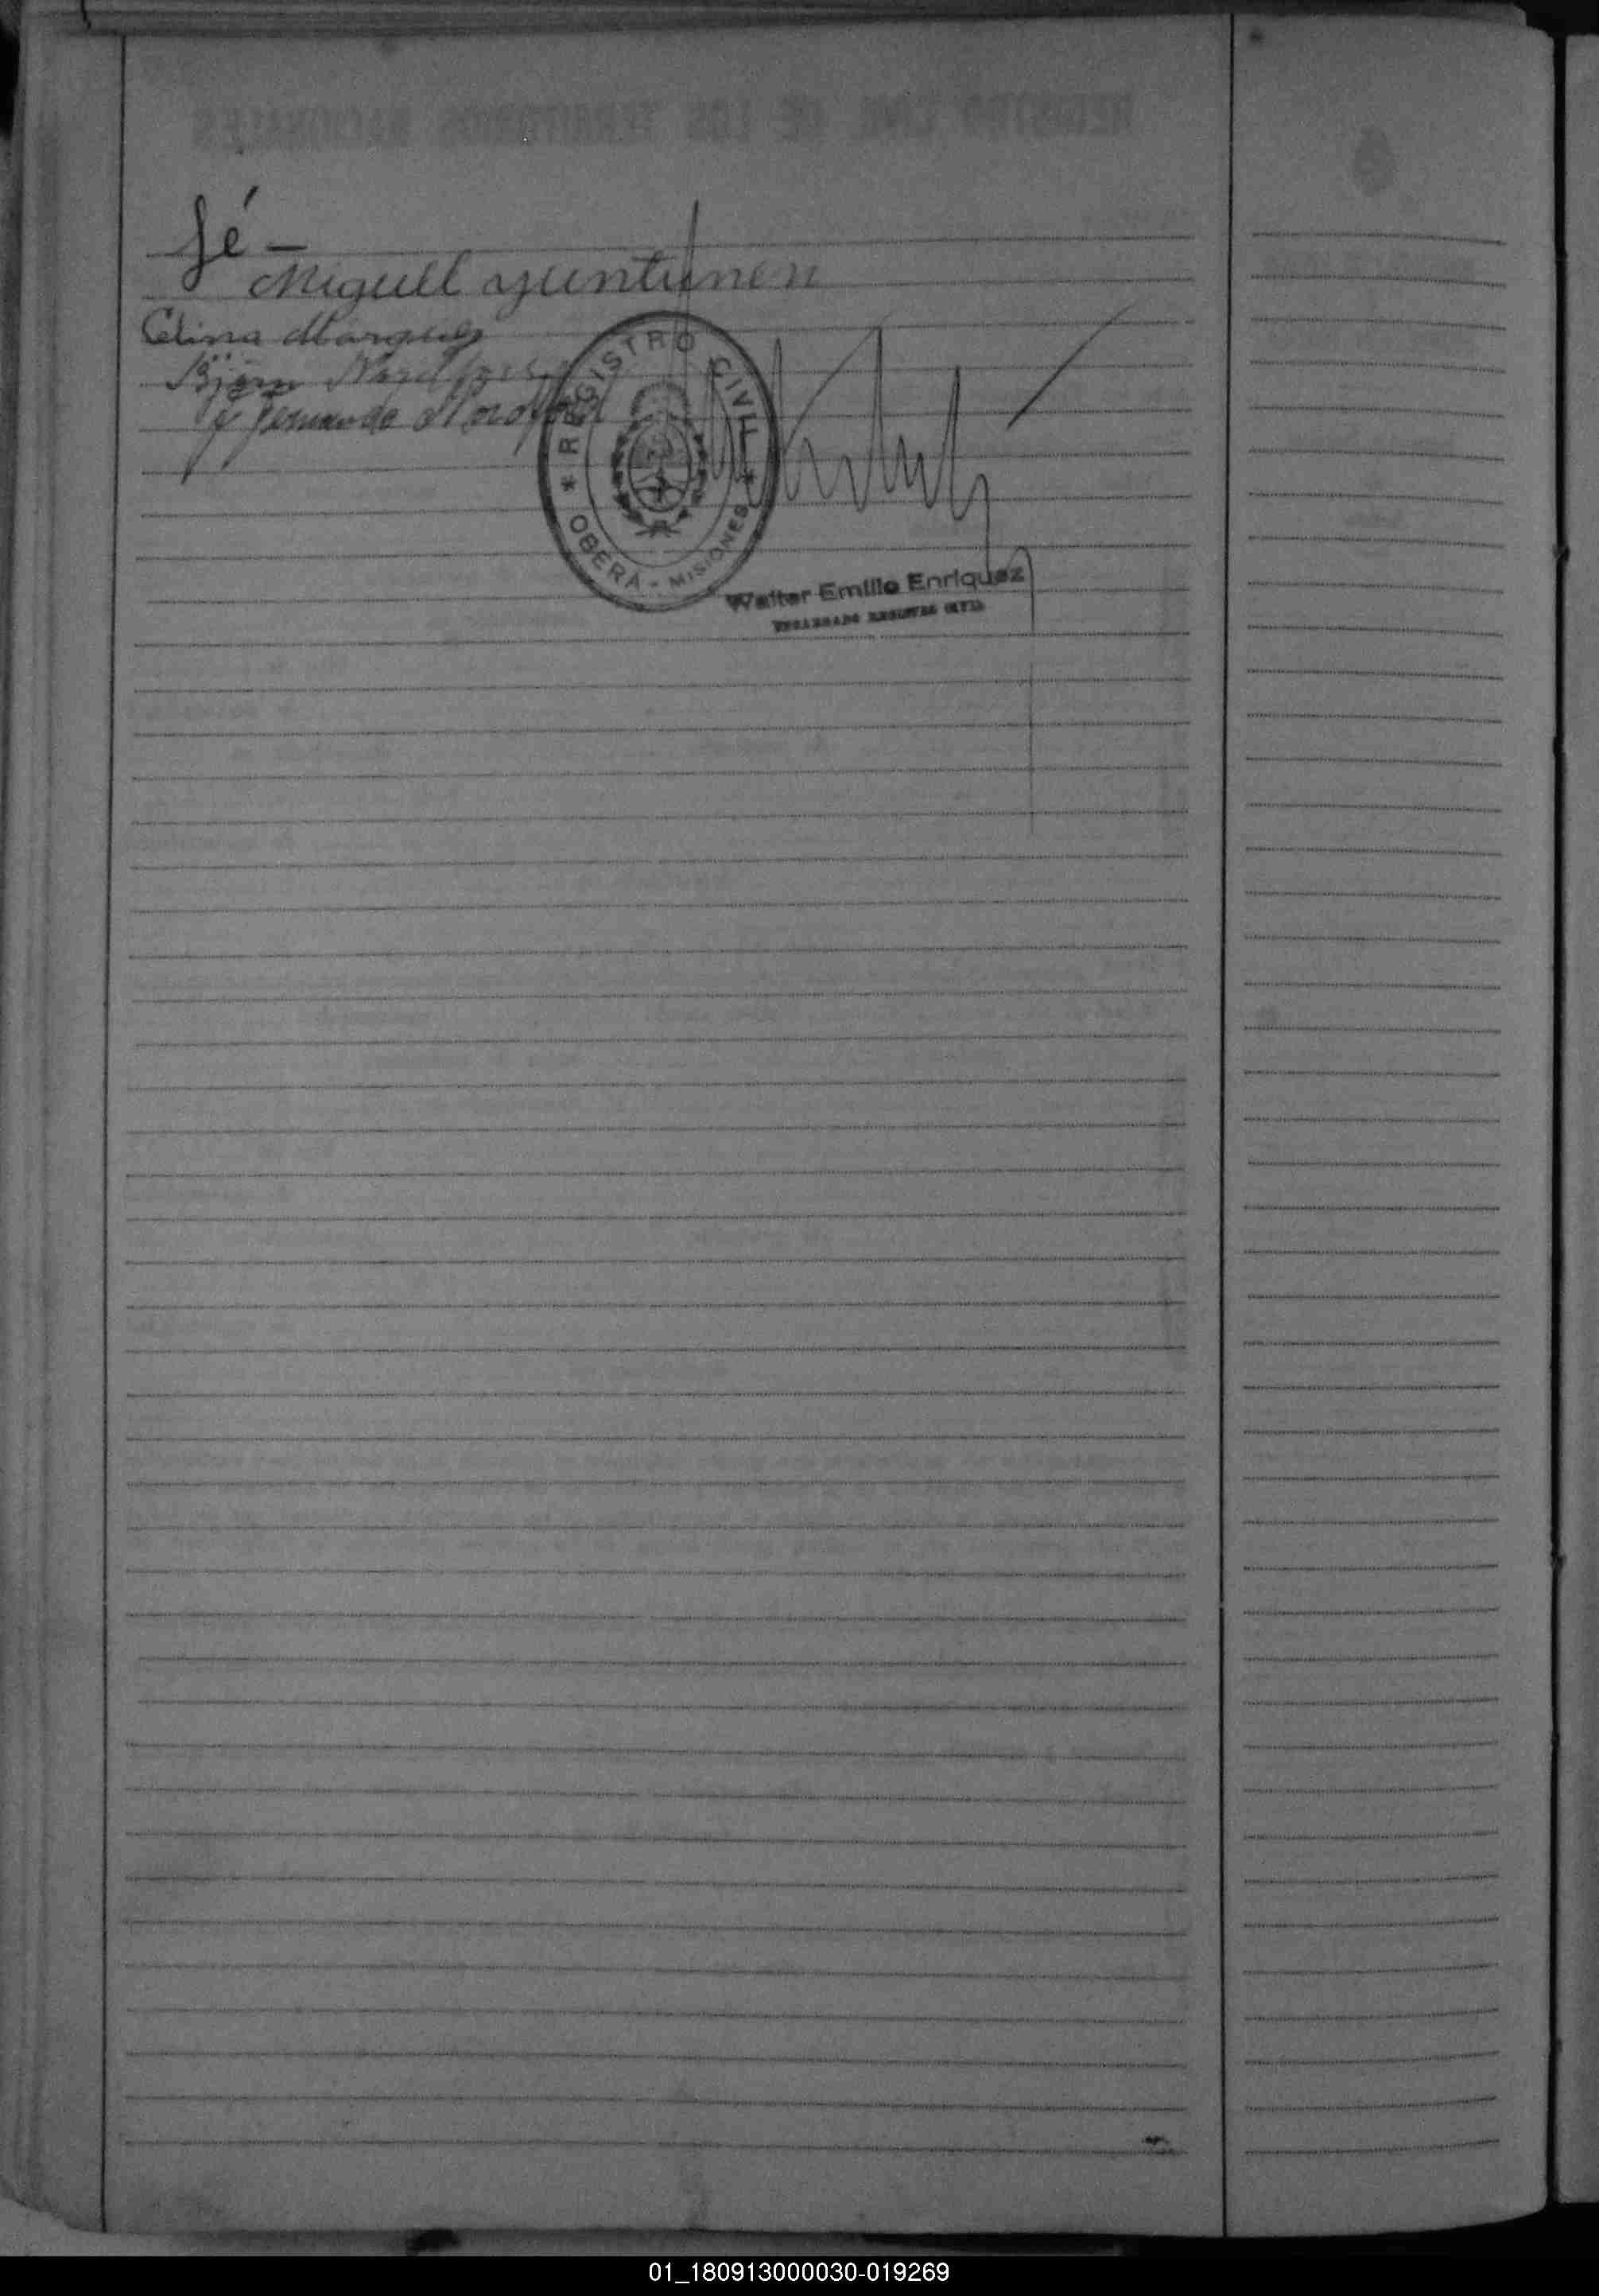 fé —
Miguel Yuntunen
Celina Marques
Björn
Fernando
* REGISTRO CIVIL *
OBERA - MISIONES
Walter Emilio Enriquez
ENCARGADO REGISTRO CIVIL
01_180913000030-019269